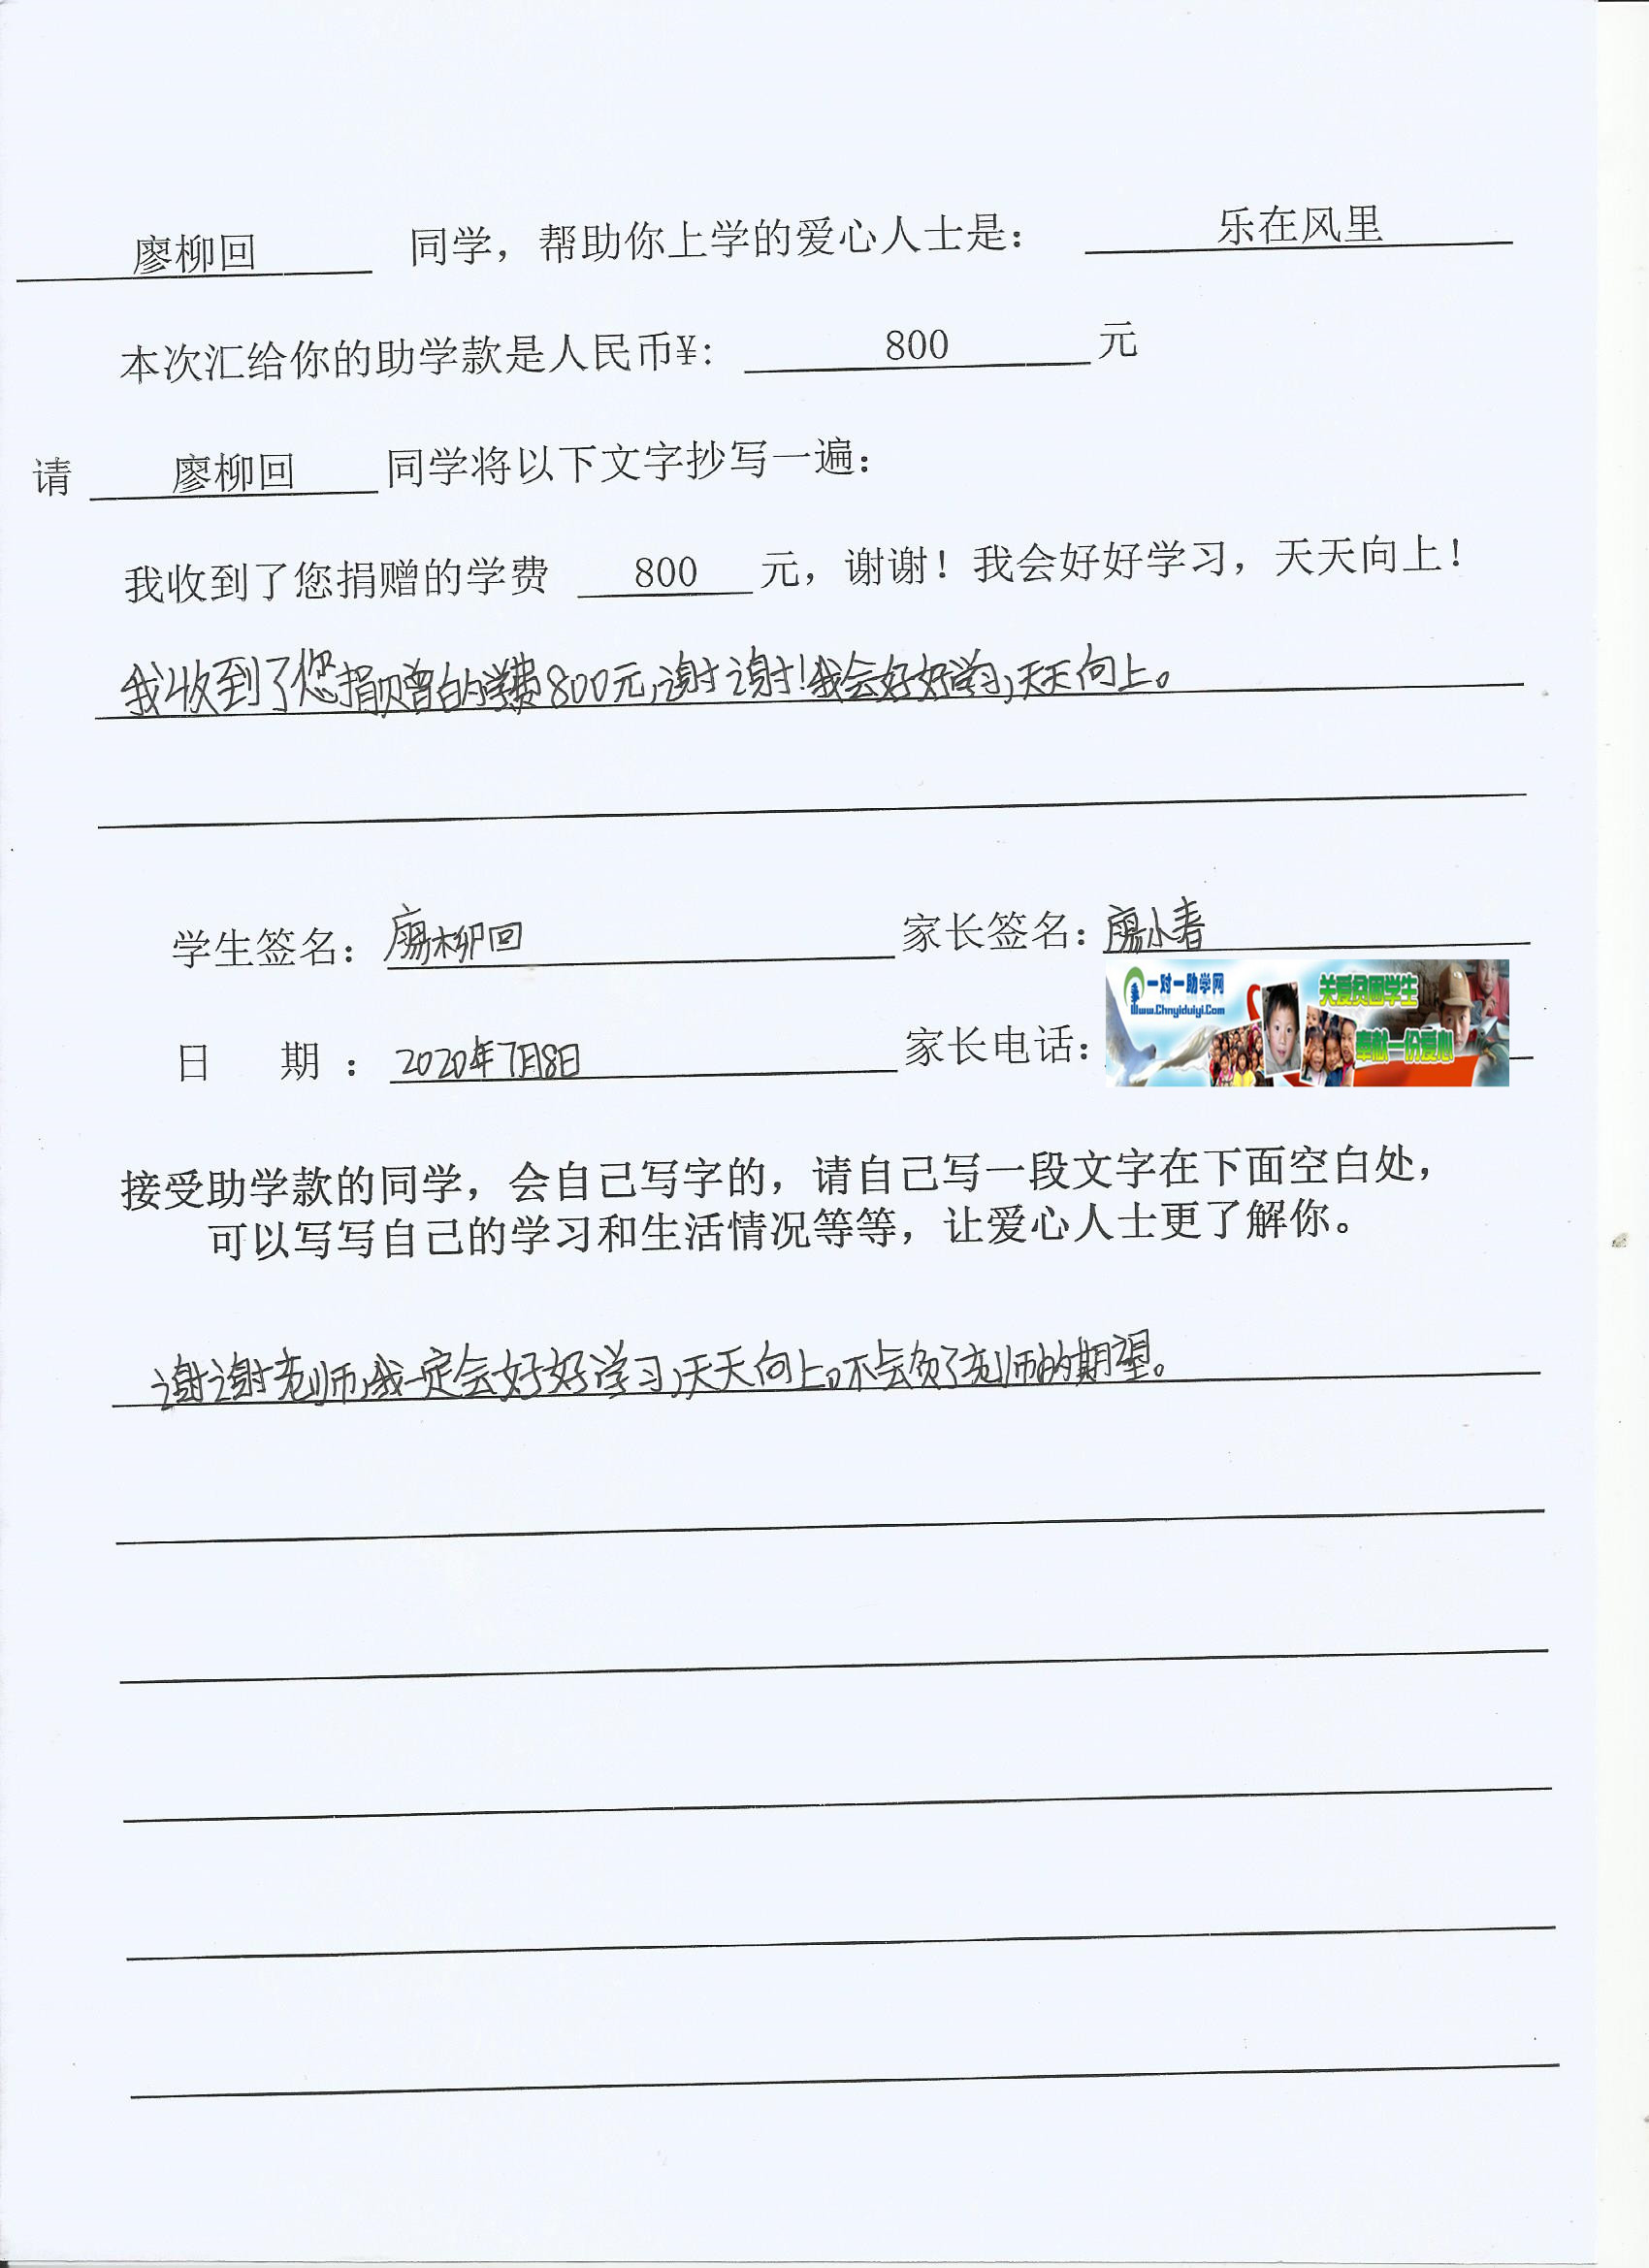 廖柳回 同学，帮助你上学的爱心人士是： 乐在风里
本次汇给你的助学款是人民币¥： 800 元
请 廖柳回 同学将以下文字抄写一遍：
我收到了您捐赠的学费 800 元，谢谢！我会好好学习，天天向上！
我收到了您捐赠的学费800元，谢谢！我会好好学习，天天向上。
学生签名：廖柳回 家长签名：廖小春
一对一助学网 关爱贫困学生
Www.Chnyiduiyi.Com
奉献一份爱心
日 期：2020年7月8日 家长电话：
接受助学款的同学，会自己写字的，请自己写一段文字在下面空白处，
可以写写自己的学习和生活情况等等，让爱心人士更了解你。
谢谢老师，我一定会好好学习，天天向上。不会负了老师的期望。